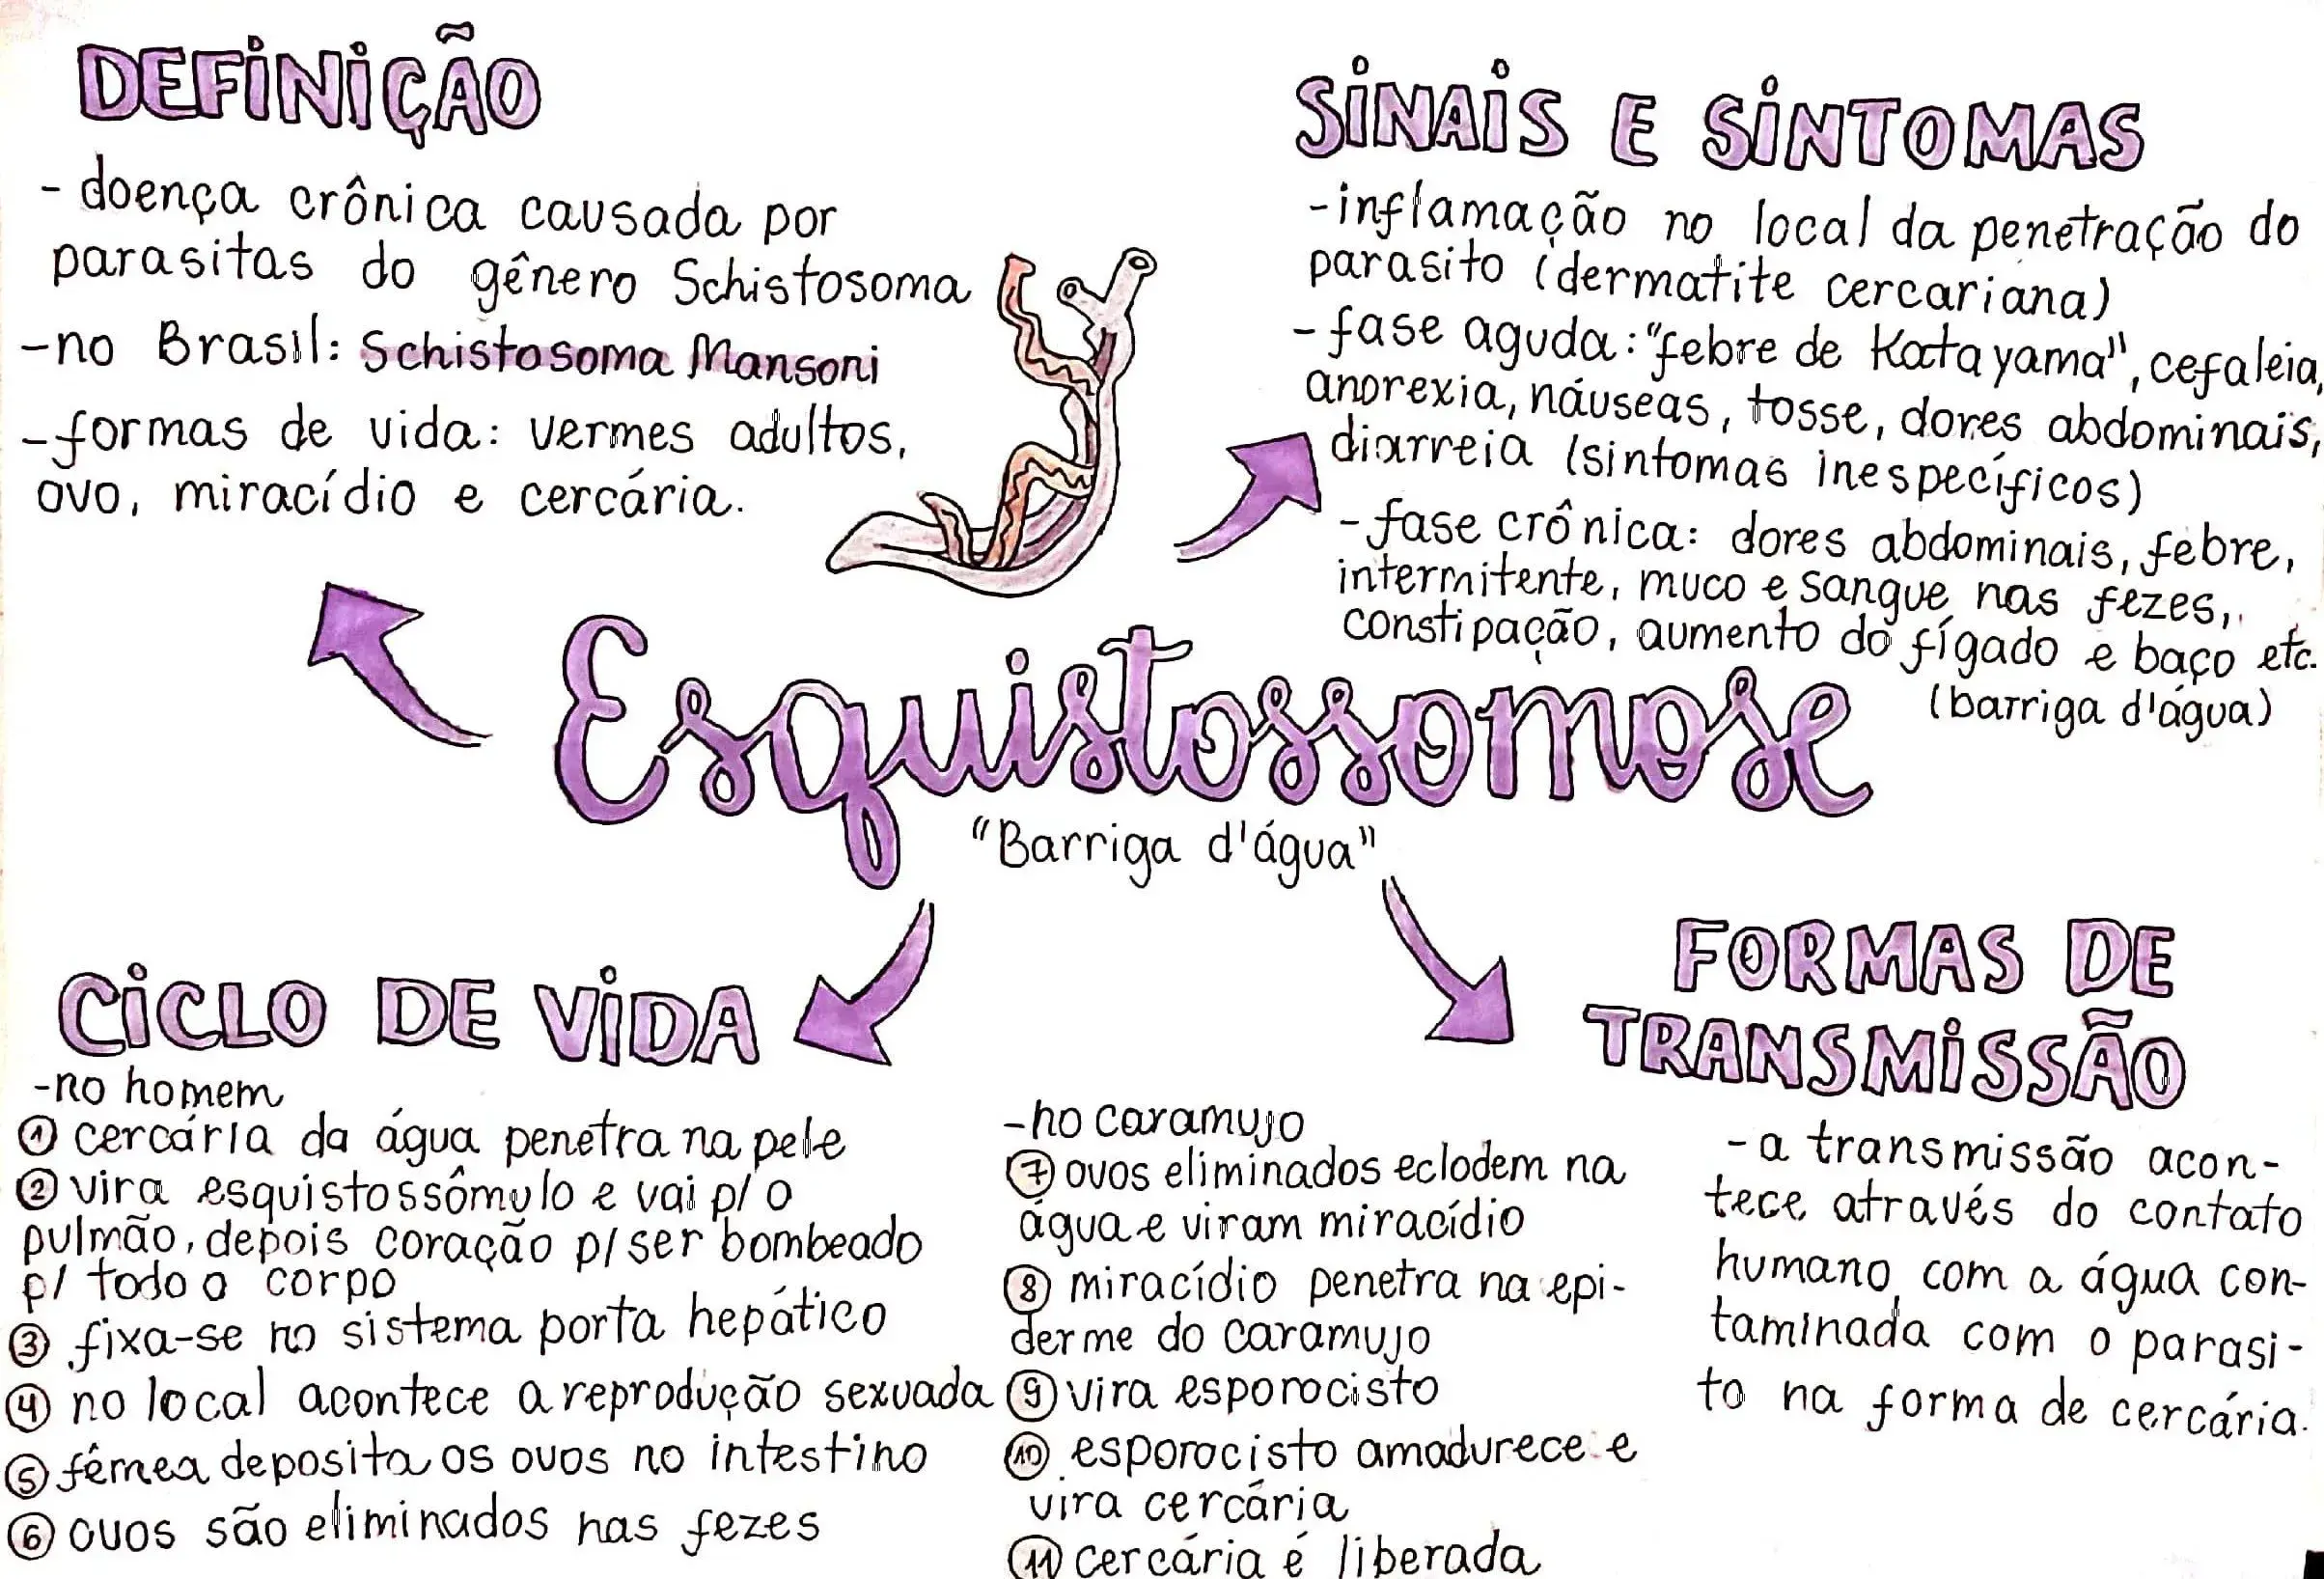 DEFINIÇÃO
- doença crônica causada por
parasitas do gênero Schistosoma
-no Brasil: Schistosoma Mansoni
-formas de vida: vermes adultos,
ovo, miracídio e cercária.
SINAIS E SINTOMAS
-inflamação no local da penetração do
parasito (dermatite cercariana)
-fase aguda: "febre de Katayama", cefaleia,
anorexia, náuseas, tosse, dores abdominais,
diarreia (sintomas inespecíficos)
-fase crônica: dores abdominais, febre,
intermitente, muco e sangue nas fezes,
constipação, aumento do fígado e baço etc.
(barriga d'água)
Esquistossomose
"Barriga d'água"
CICLO DE VIDA
-no homem
① cercária da água penetra na pele
② vira esquistossômulo e vai p/ o
pulmão, depois coração p/ ser bombeado
p/ todo o corpo
③ fixa-se no sistema porta hepático
④ no local acontece a reprodução sexuada
⑤ fêmea deposita os ovos no intestino
⑥ ovos são eliminados nas fezes
-no caramujo
⑦ ovos eliminados eclodem na
água e viram miracídio
⑧ miracídio penetra na epi-
derme do caramujo
⑨ vira esporocisto
⑩ esporocisto amadurece e
vira cercária
⑪ cercária é liberada
FORMAS DE
TRANSMISSÃO
-a transmissão acon-
tece através do contato
humano com a água con-
taminada com o parasi-
to na forma de cercária.